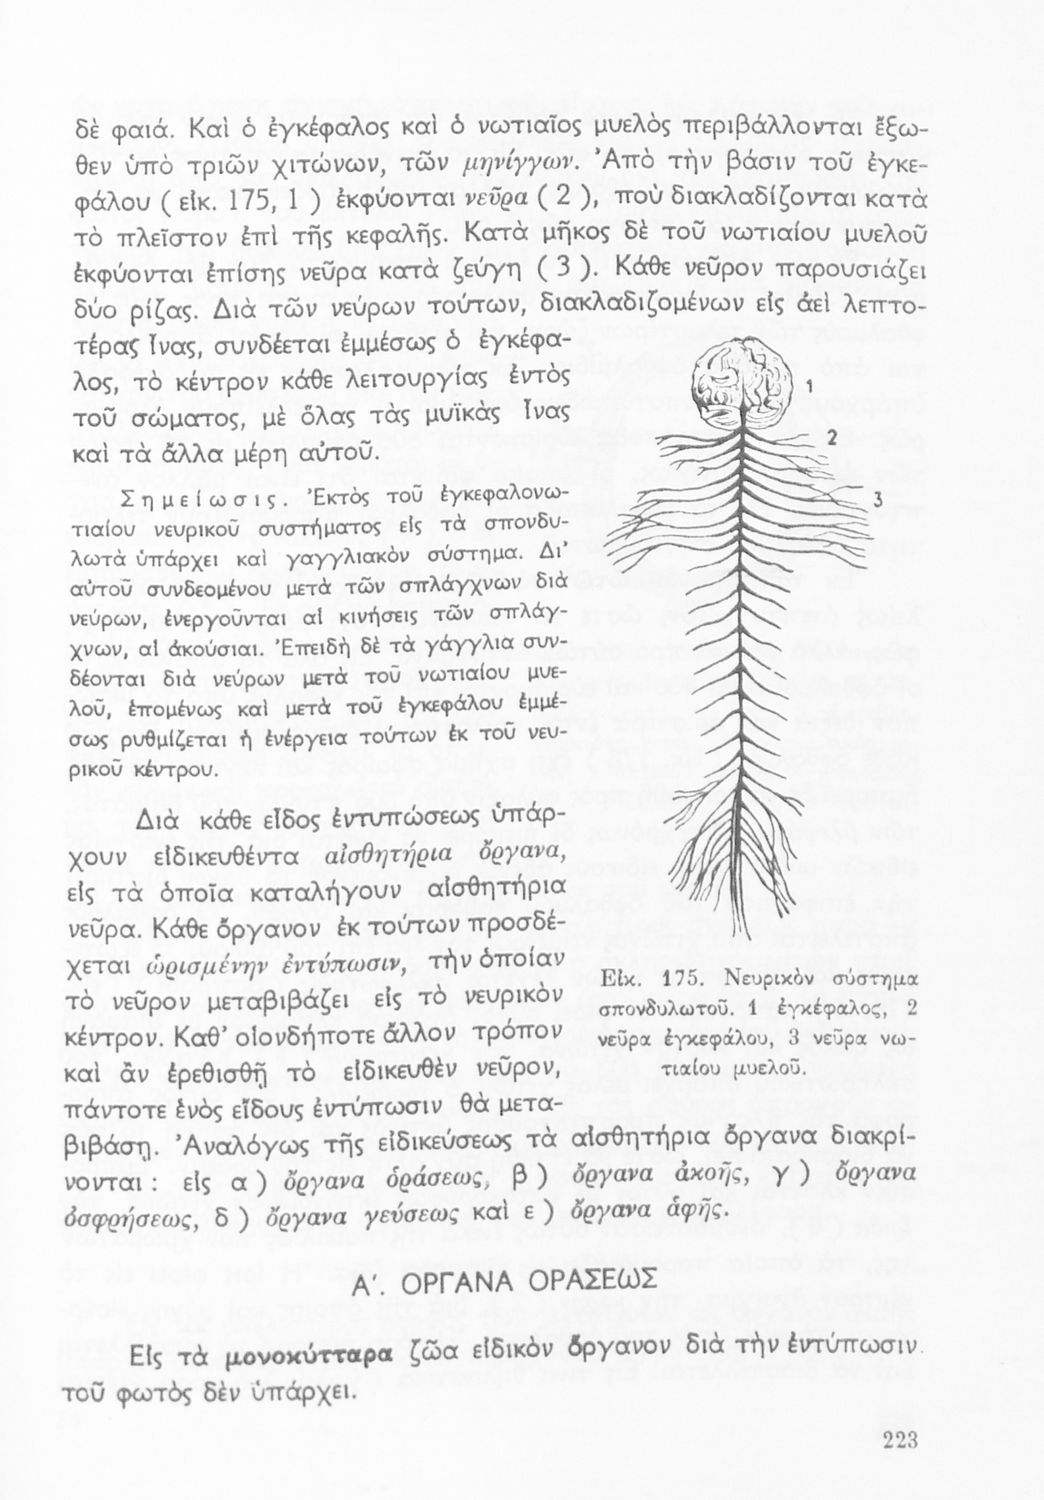 δὲ φαιά. Καὶ ὁ ἐγκέφαλος καὶ ὁ νωτιαῖος μυελὸς περιβάλλονται ἔξω-
θεν ὑπὸ τριῶν χιτώνων, τῶν μηνίγγων. Ἀπὸ τὴν βάσιν τοῦ ἐγκε-
φάλου ( εἰκ. 175, 1 ) ἐκφύονται νεῦρα ( 2 ), ποὺ διακλαδίζονται κατὰ
τὸ πλεῖστον ἐπὶ τῆς κεφαλῆς. Κατὰ μῆκος δὲ τοῦ νωτιαίου μυελοῦ
ἐκφύονται ἐπίσης νεῦρα κατὰ ζεύγη ( 3 ). Κάθε νεῦρον παρουσιάζει
δύο ρίζας. Διὰ τῶν νεύρων τούτων, διακλαδιζομένων εἰς ἀεὶ λεπτο-
τέρας ἶνας, συνδέεται ἐμμέσως ὁ ἐγκέφα-
λος, τὸ κέντρον κάθε λειτουργίας ἐντὸς
τοῦ σώματος, μὲ ὅλας τὰς μυϊκὰς ἶνας
καὶ τὰ ἄλλα μέρη αὐτοῦ.
Σημείωσις. Ἐκτὸς τοῦ ἐγκεφαλονω-
τιαίου νευρικοῦ συστήματος εἰς τὰ σπονδυ-
λωτὰ ὑπάρχει καὶ γαγγλιακὸν σύστημα. Δι’
αὐτοῦ συνδεομένου μετὰ τῶν σπλάγχνων διὰ
νεύρων, ἐνεργοῦνται αἱ κινήσεις τῶν σπλάγ-
χνων, αἱ ἀκούσιαι. Ἐπειδὴ δὲ τὰ γάγγλια συν-
δέονται διὰ νεύρων μετὰ τοῦ νωτιαίου μυε-
λοῦ, ἑπομένως καὶ μετὰ τοῦ ἐγκεφάλου ἐμμέ-
σως ρυθμίζεται ἡ ἐνέργεια τούτων ἐκ τοῦ νευ-
ρικοῦ κέντρου.
Διὰ κάθε εἶδος ἐντυπώσεως ὑπάρ-
χουν εἰδικευθέντα αἰσθητήρια ὄργανα,
εἰς τὰ ὁποῖα καταλήγουν αἰσθητήρια
νεῦρα. Κάθε ὄργανον ἐκ τούτων προσδέ-
χεται ὡρισμένην ἐντύπωσιν, τὴν ὁποίαν
τὸ νεῦρον μεταβιβάζει εἰς τὸ νευρικὸν
κέντρον. Καθ’ οἱονδήποτε ἄλλον τρόπον
καὶ ἂν ἐρεθισθῇ τὸ εἰδικευθὲν νεῦρον,
πάντοτε ἑνὸς εἴδους ἐντύπωσιν θὰ μετα-
βιβάσῃ. Ἀναλόγως τῆς εἰδικεύσεως τὰ αἰσθητήρια ὄργανα διακρί-
νονται : εἰς α ) ὄργανα ὁράσεως, β ) ὄργανα ἀκοῆς, γ ) ὄργανα
ὀσφρήσεως, δ ) ὄργανα γεύσεως καὶ ε ) ὄργανα ἁφῆς.
1
2
3
Εἰκ. 175. Νευρικὸν σύστημα
σπονδυλωτοῦ. 1 ἐγκέφαλος, 2
νεῦρα ἐγκεφάλου, 3 νεῦρα νω-
τιαίου μυελοῦ.
Α′. ΟΡΓΑΝΑ ΟΡΑΣΕΩΣ
Εἰς τὰ μονοκύτταρα ζῶα εἰδικὸν ὄργανον διὰ τὴν ἐντύπωσιν
τοῦ φωτὸς δὲν ὑπάρχει.
223